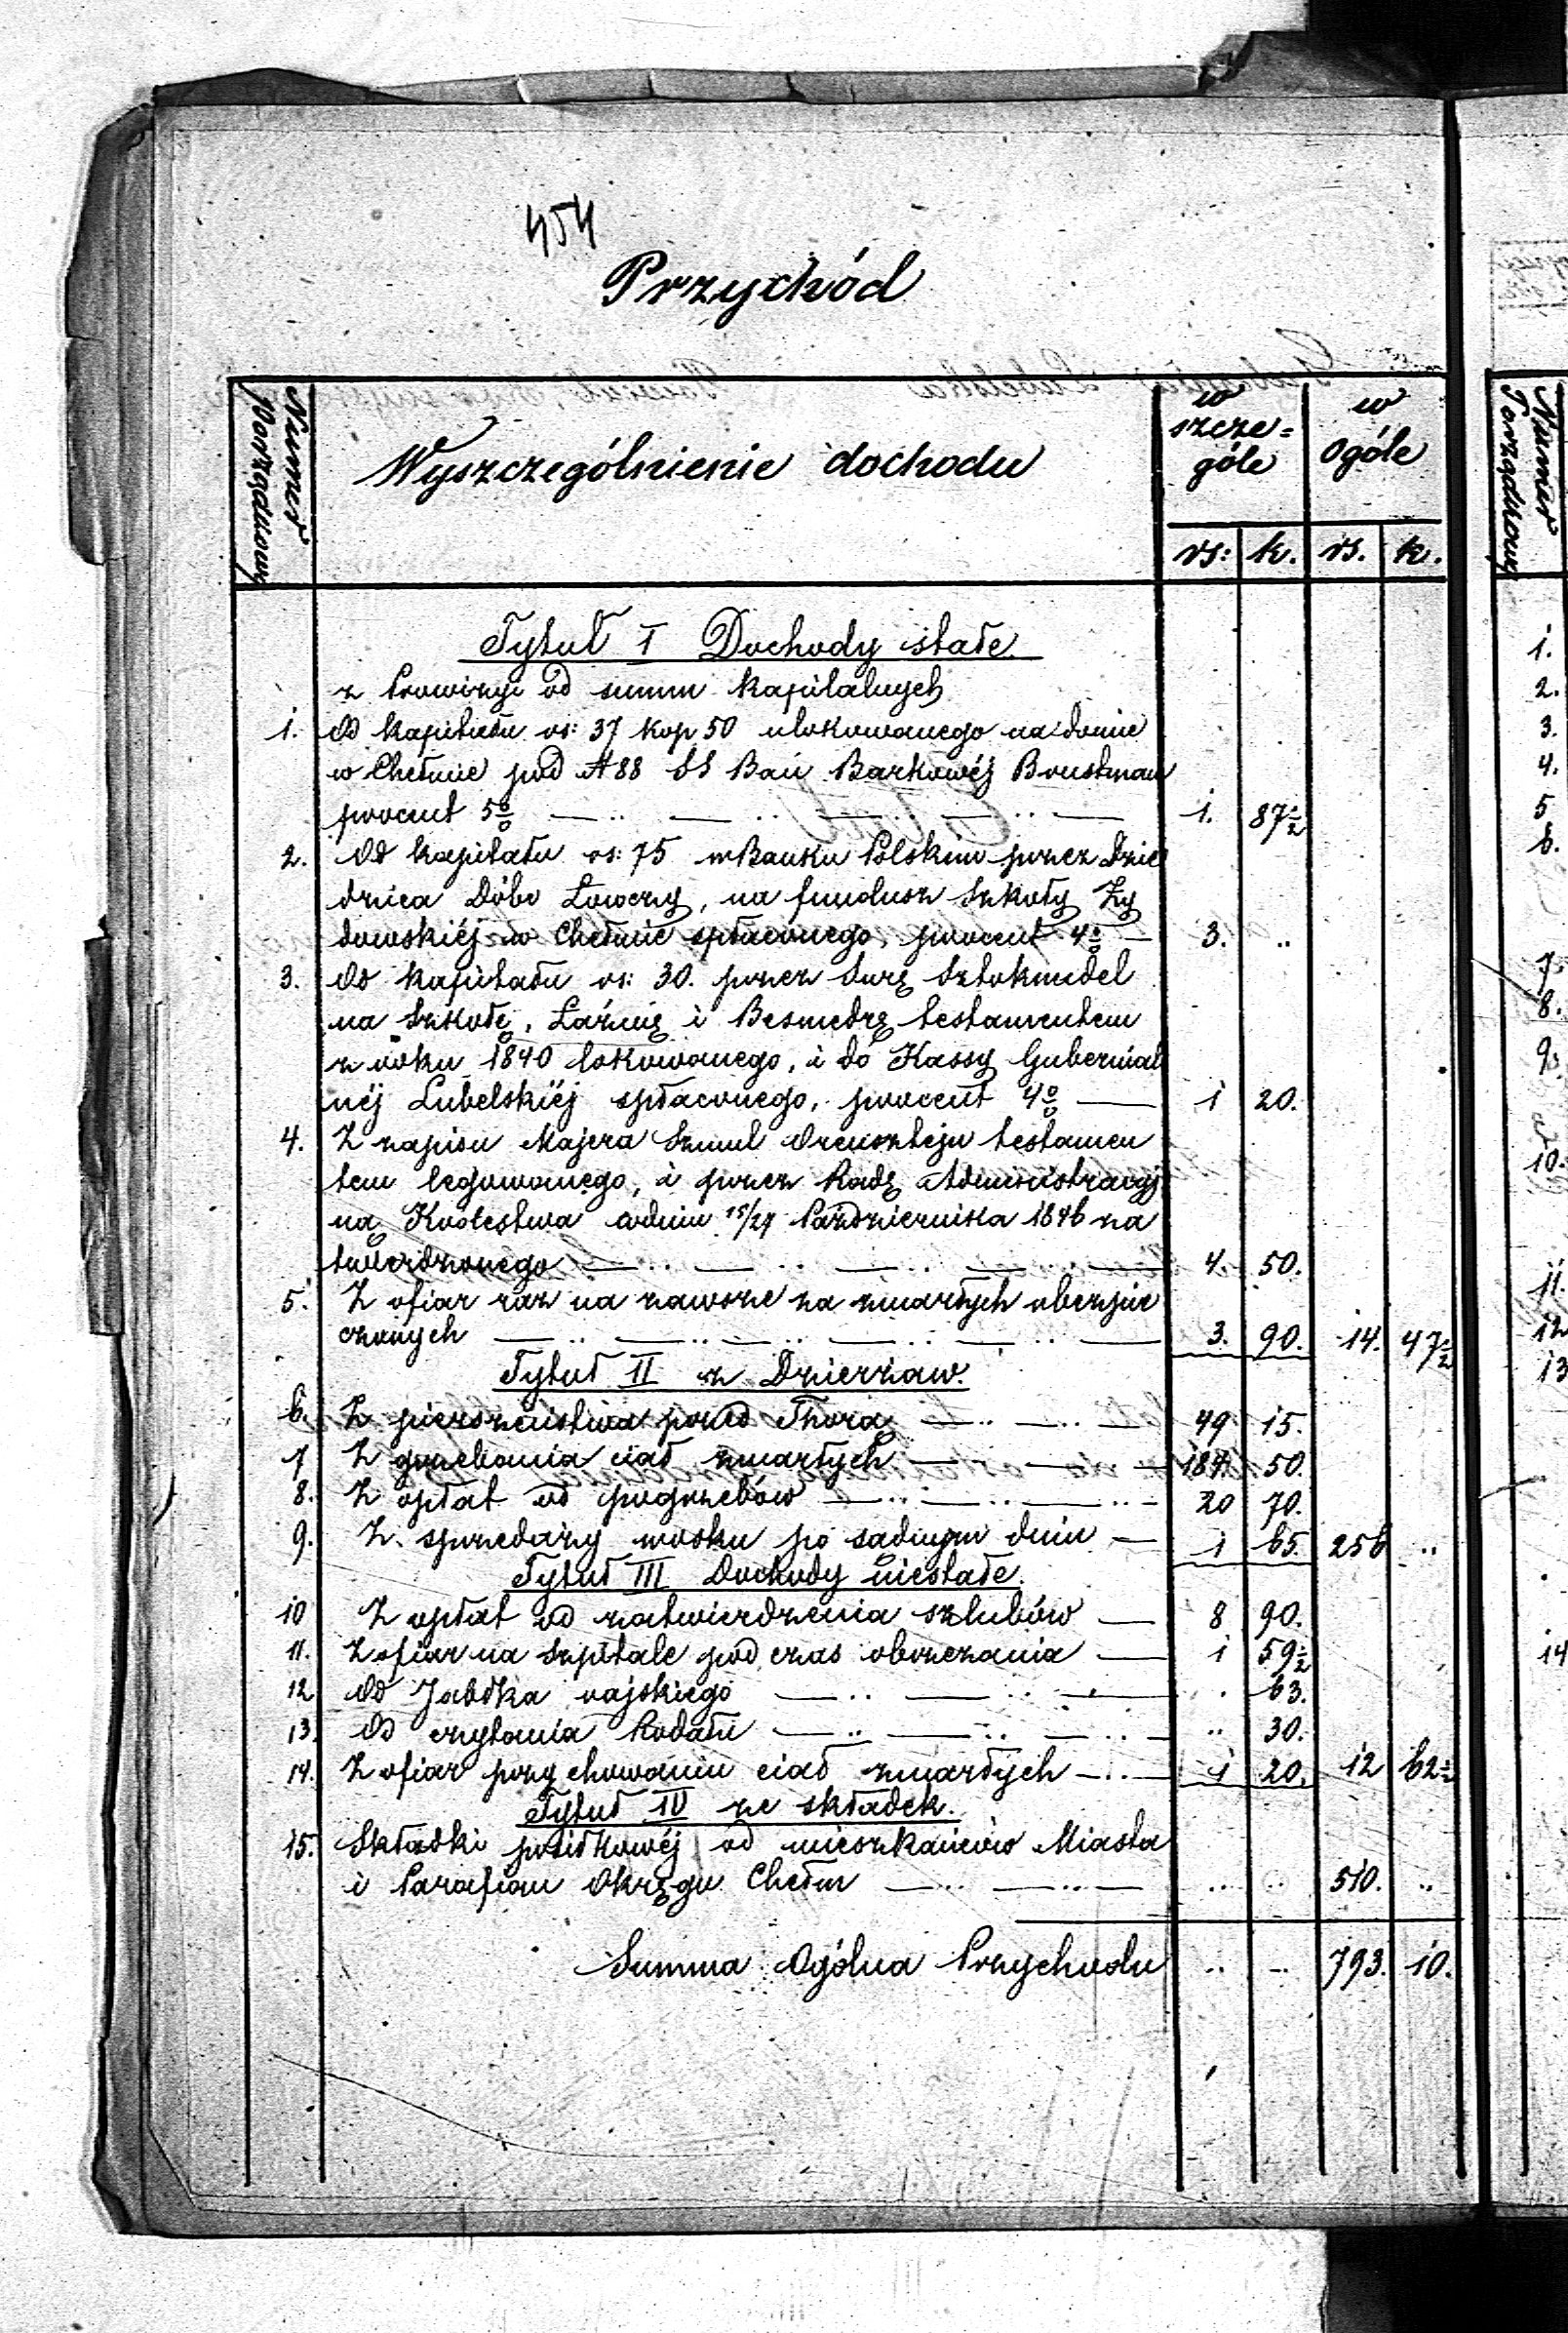 454
Przychód
Numer Porządkowy
Wyszczególnienie dochodu
w szcze=góle
w ogóle
rs: k. rs. k.
Tytuł I Dochody stałe
z Prowizyi od summ kapitalnych
1. Od kapitału rs: 37 kop 50 ulokowanego na domie
w Chełmie pod N 88 SS Bań Barkowéj
procent 5% 1. 87½
2. Od kapitału rs: 75 w Banku Polskim przez Dzie
dzica Dóbr Łowczy, na fundusz Szkoły Ży
dowskiéj w Chełmie spłaconego, procent 4% 3. ..
3. Od kapitału rs: 30. przez Surę Sztokmidel
na Szkołę, Łaźnię i Besmedrę testamentem
z roku 1840 lokowanego, i do Kassy Gubernial
néj Lubelskiéj spłaconego, procent 4% 1 20.
4. Z zapisu Majera Szmul Orensztejn testamen
tem legowanego, i przez Radę Administracyj
ną Królestwa w dniu 15/27 Października 1846 za
twierdzonego 4. 50.
5. Z ofiar raz na zawsze za zmarłych ubezpie
czonych 3. 90. 14. 47½
Tytuł II z Dzierżaw.
6. Z pierszeństwa przed Thorą 49 15.
7 Z grzebania ciał zmarłych 184. 50.
8. Z opłat od pogrzebów 20 70.
9. Z sprzedaży wosku po sądnym dniu 1 65. 256 ..
Tytuł III Dochody niestałe.
10 Z opłat od zatwierdzenia szlubów 8 90.
11. Z ofiar na Szpitale pod czas obrzezania 1 59½
12 Od Jabłka rajskiego . 63.
13. Od czytania Rodału .. 30.
14. Z ofiar przy chowaniu ciał zmarłych 1 20. 12 62½
Tytuł IV ze składek.
15. Składki posiłkowéj od mieszkańców Miasta
i Parafian Okręgu Chełm .. .. 510. ..
Summa Ogólna Przychodu .. .. 793. 10.
Numer Porządkowy
1.
2.
3.
4.
5
6.
7.
8.
9.
10.
11.
12
13
14